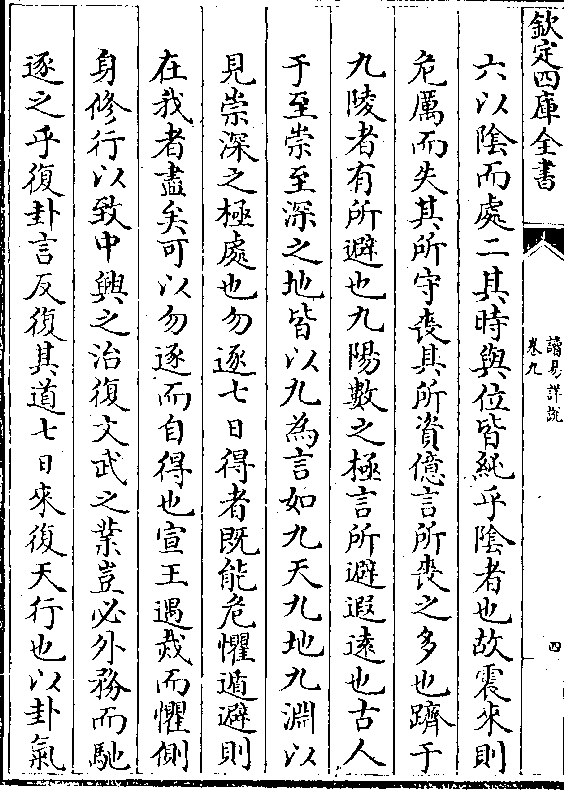 欽定四庫全書
讀易詳說
卷九
四
六以陰而處二其時與位皆純乎陰者也故震來則
危厲而失其所守喪其所資億言所喪之多也躋于
九陵者有所避也九陽數之極言所避遐遠也古人
于至崇至深之地皆以九為言如九天九地九淵以
見崇深之極處也勿逐七日得者既能危懼遁避則
在我者盡矣可以勿逐而自得也宣王遇烖而懼側
身修行以致中興之治復文武之業豈必外務而馳
逐之乎復卦言反復其道七日來復天行也以卦氣